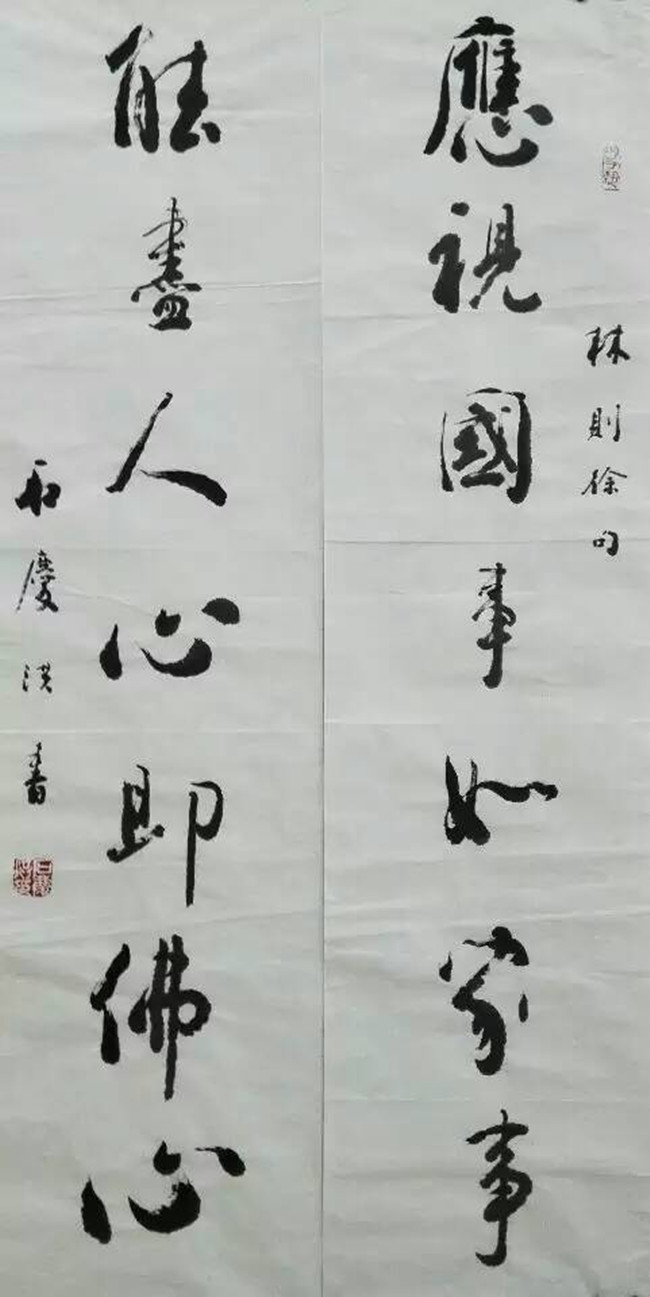 應視國事如家事
林則徐句
能盡人心即佛心
慶洪書